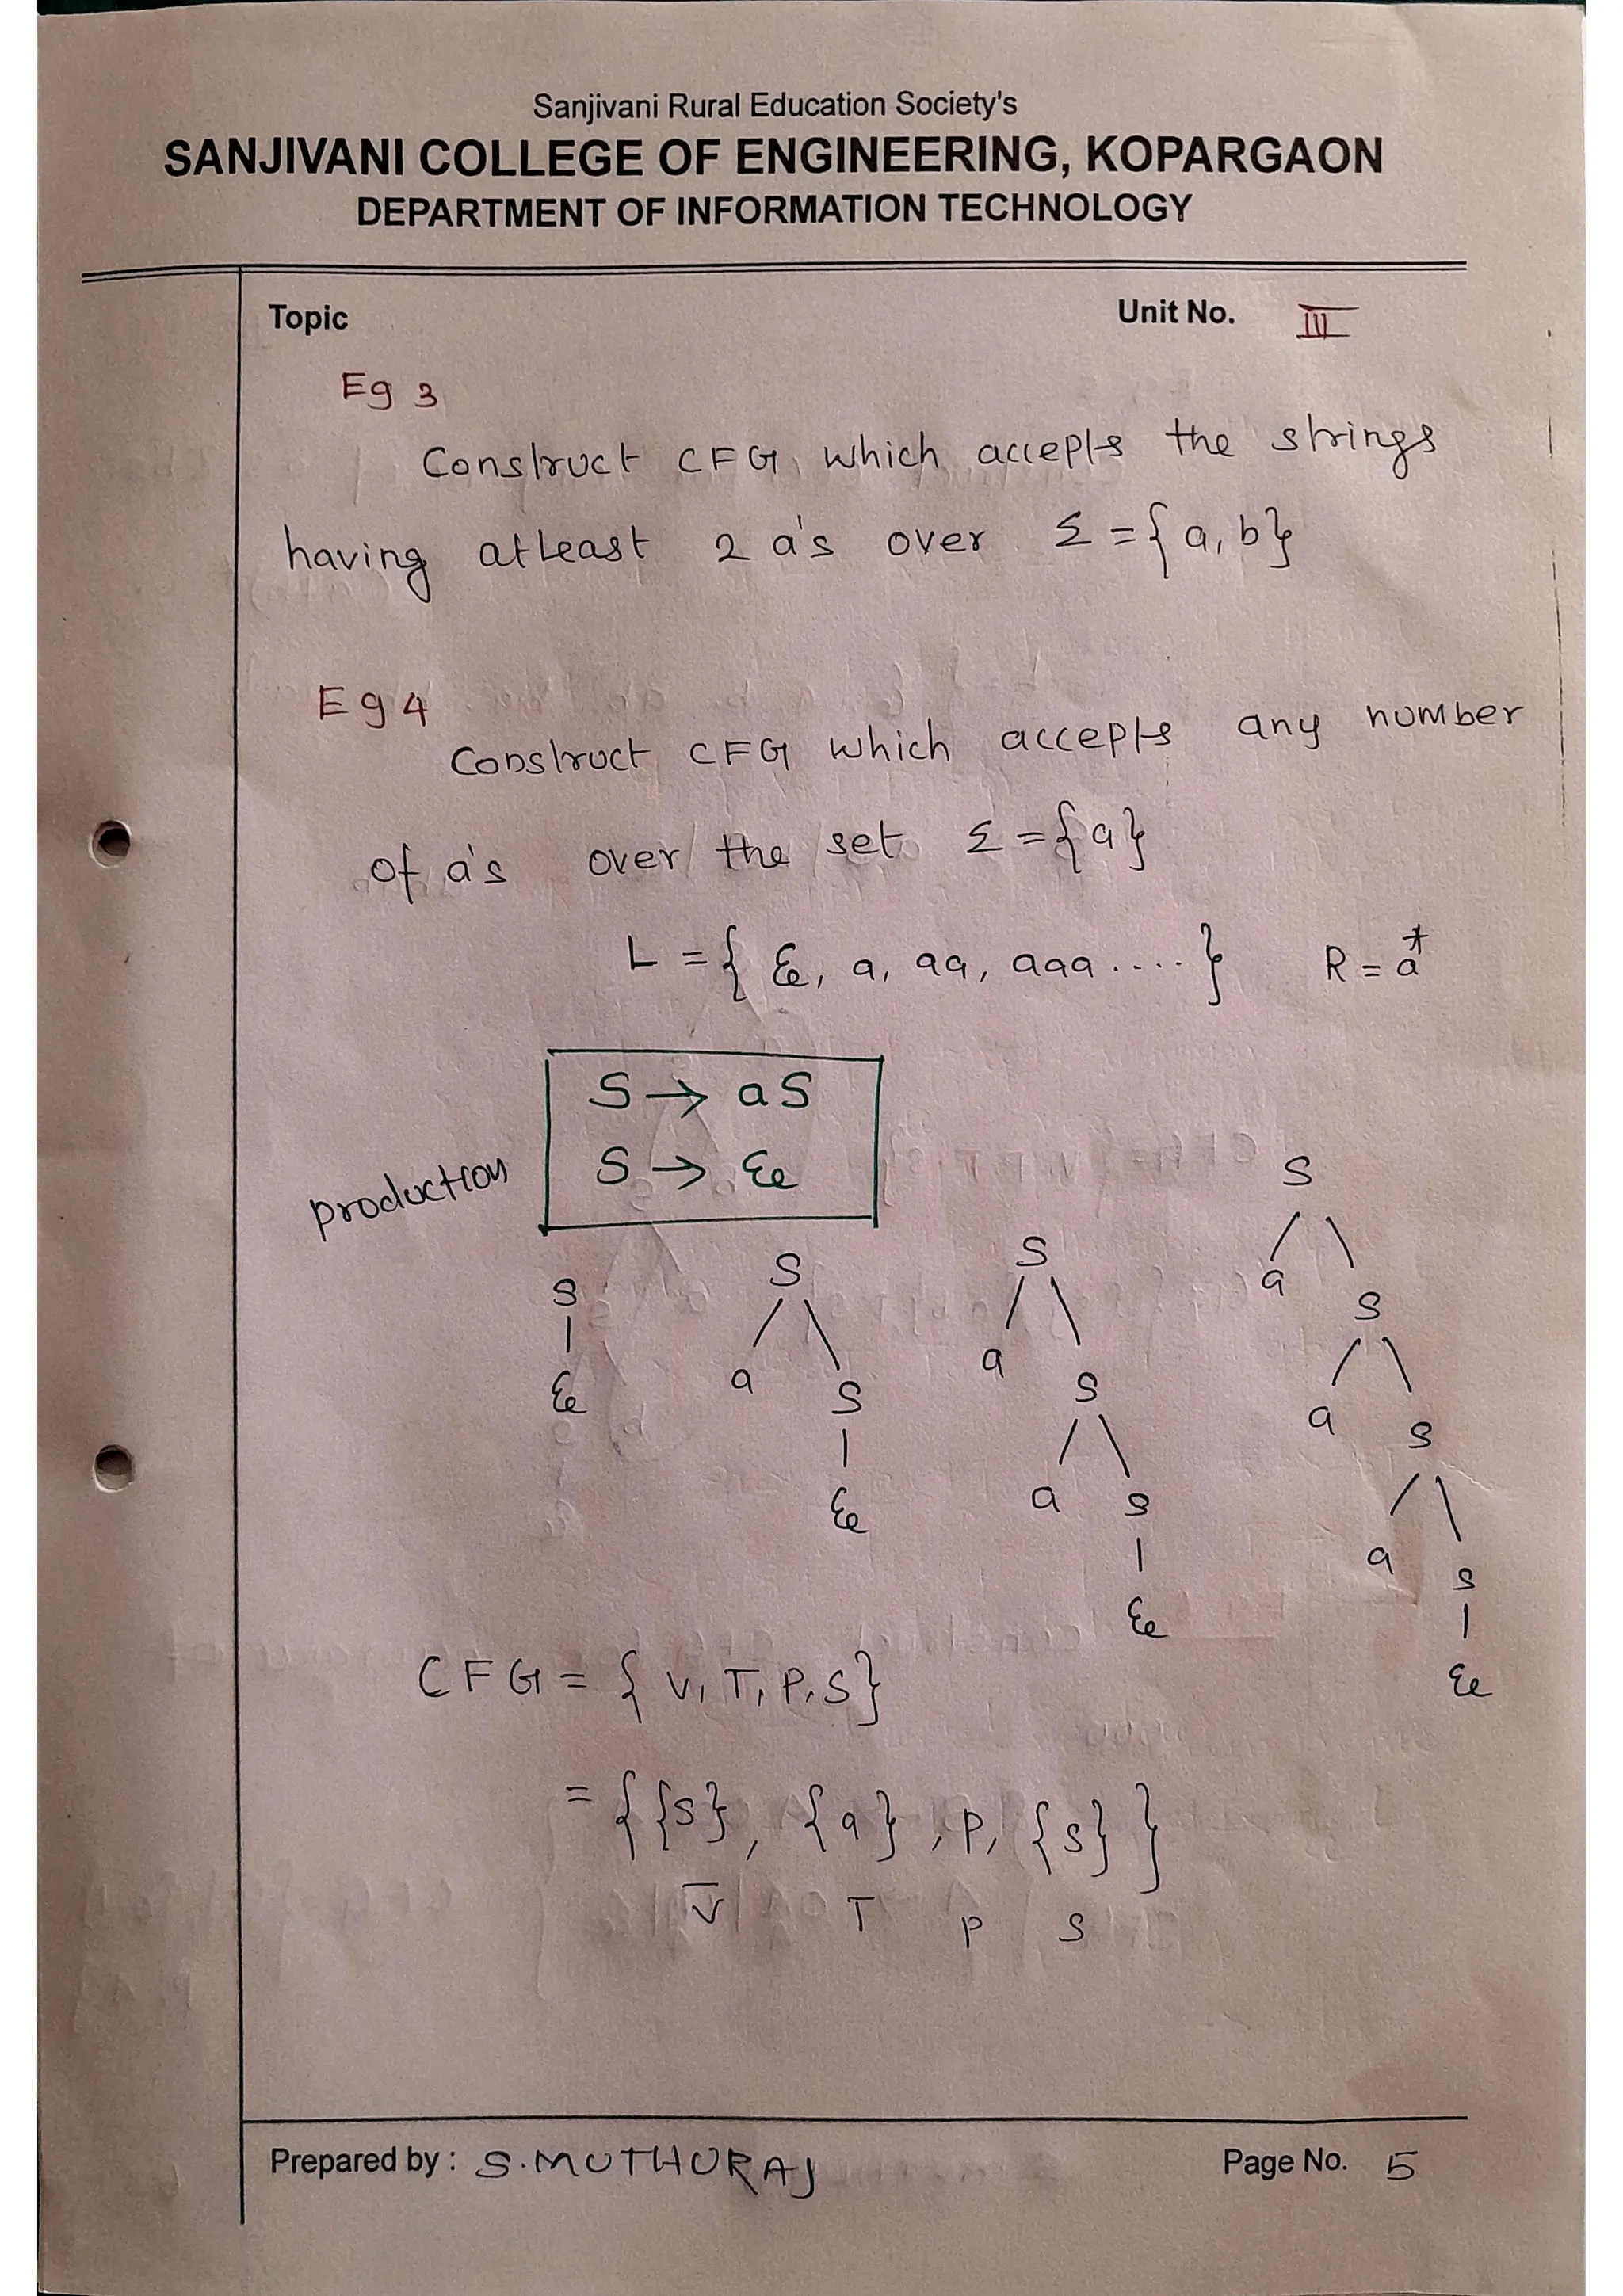 Sanjivani Rural Education Society's
SANJIVANI COLLEGE OF ENGINEERING, KOPARGAON
DEPARTMENT OF INFORMATION TECHNOLOGY
Topic Unit No. III
Eg 3
Construct CFG which accepts the strings
having atleast 2 a's over Σ = {a, b}
Eg 4
Construct CFG which accepts any number
of a's over the set Σ = {a}
L = { ε, a, aa, aaa .... } R = a*
S → aS
S → ε
production
S
S
S
S
a
S
ε
a
S
a
S
a
S
ε
a
S
a
S
ε
ε
CFG = { V, T, P, S }
= { {S}, {a}, P, {S} }
V T P S
Prepared by : S. MUTHURAJ Page No. 5